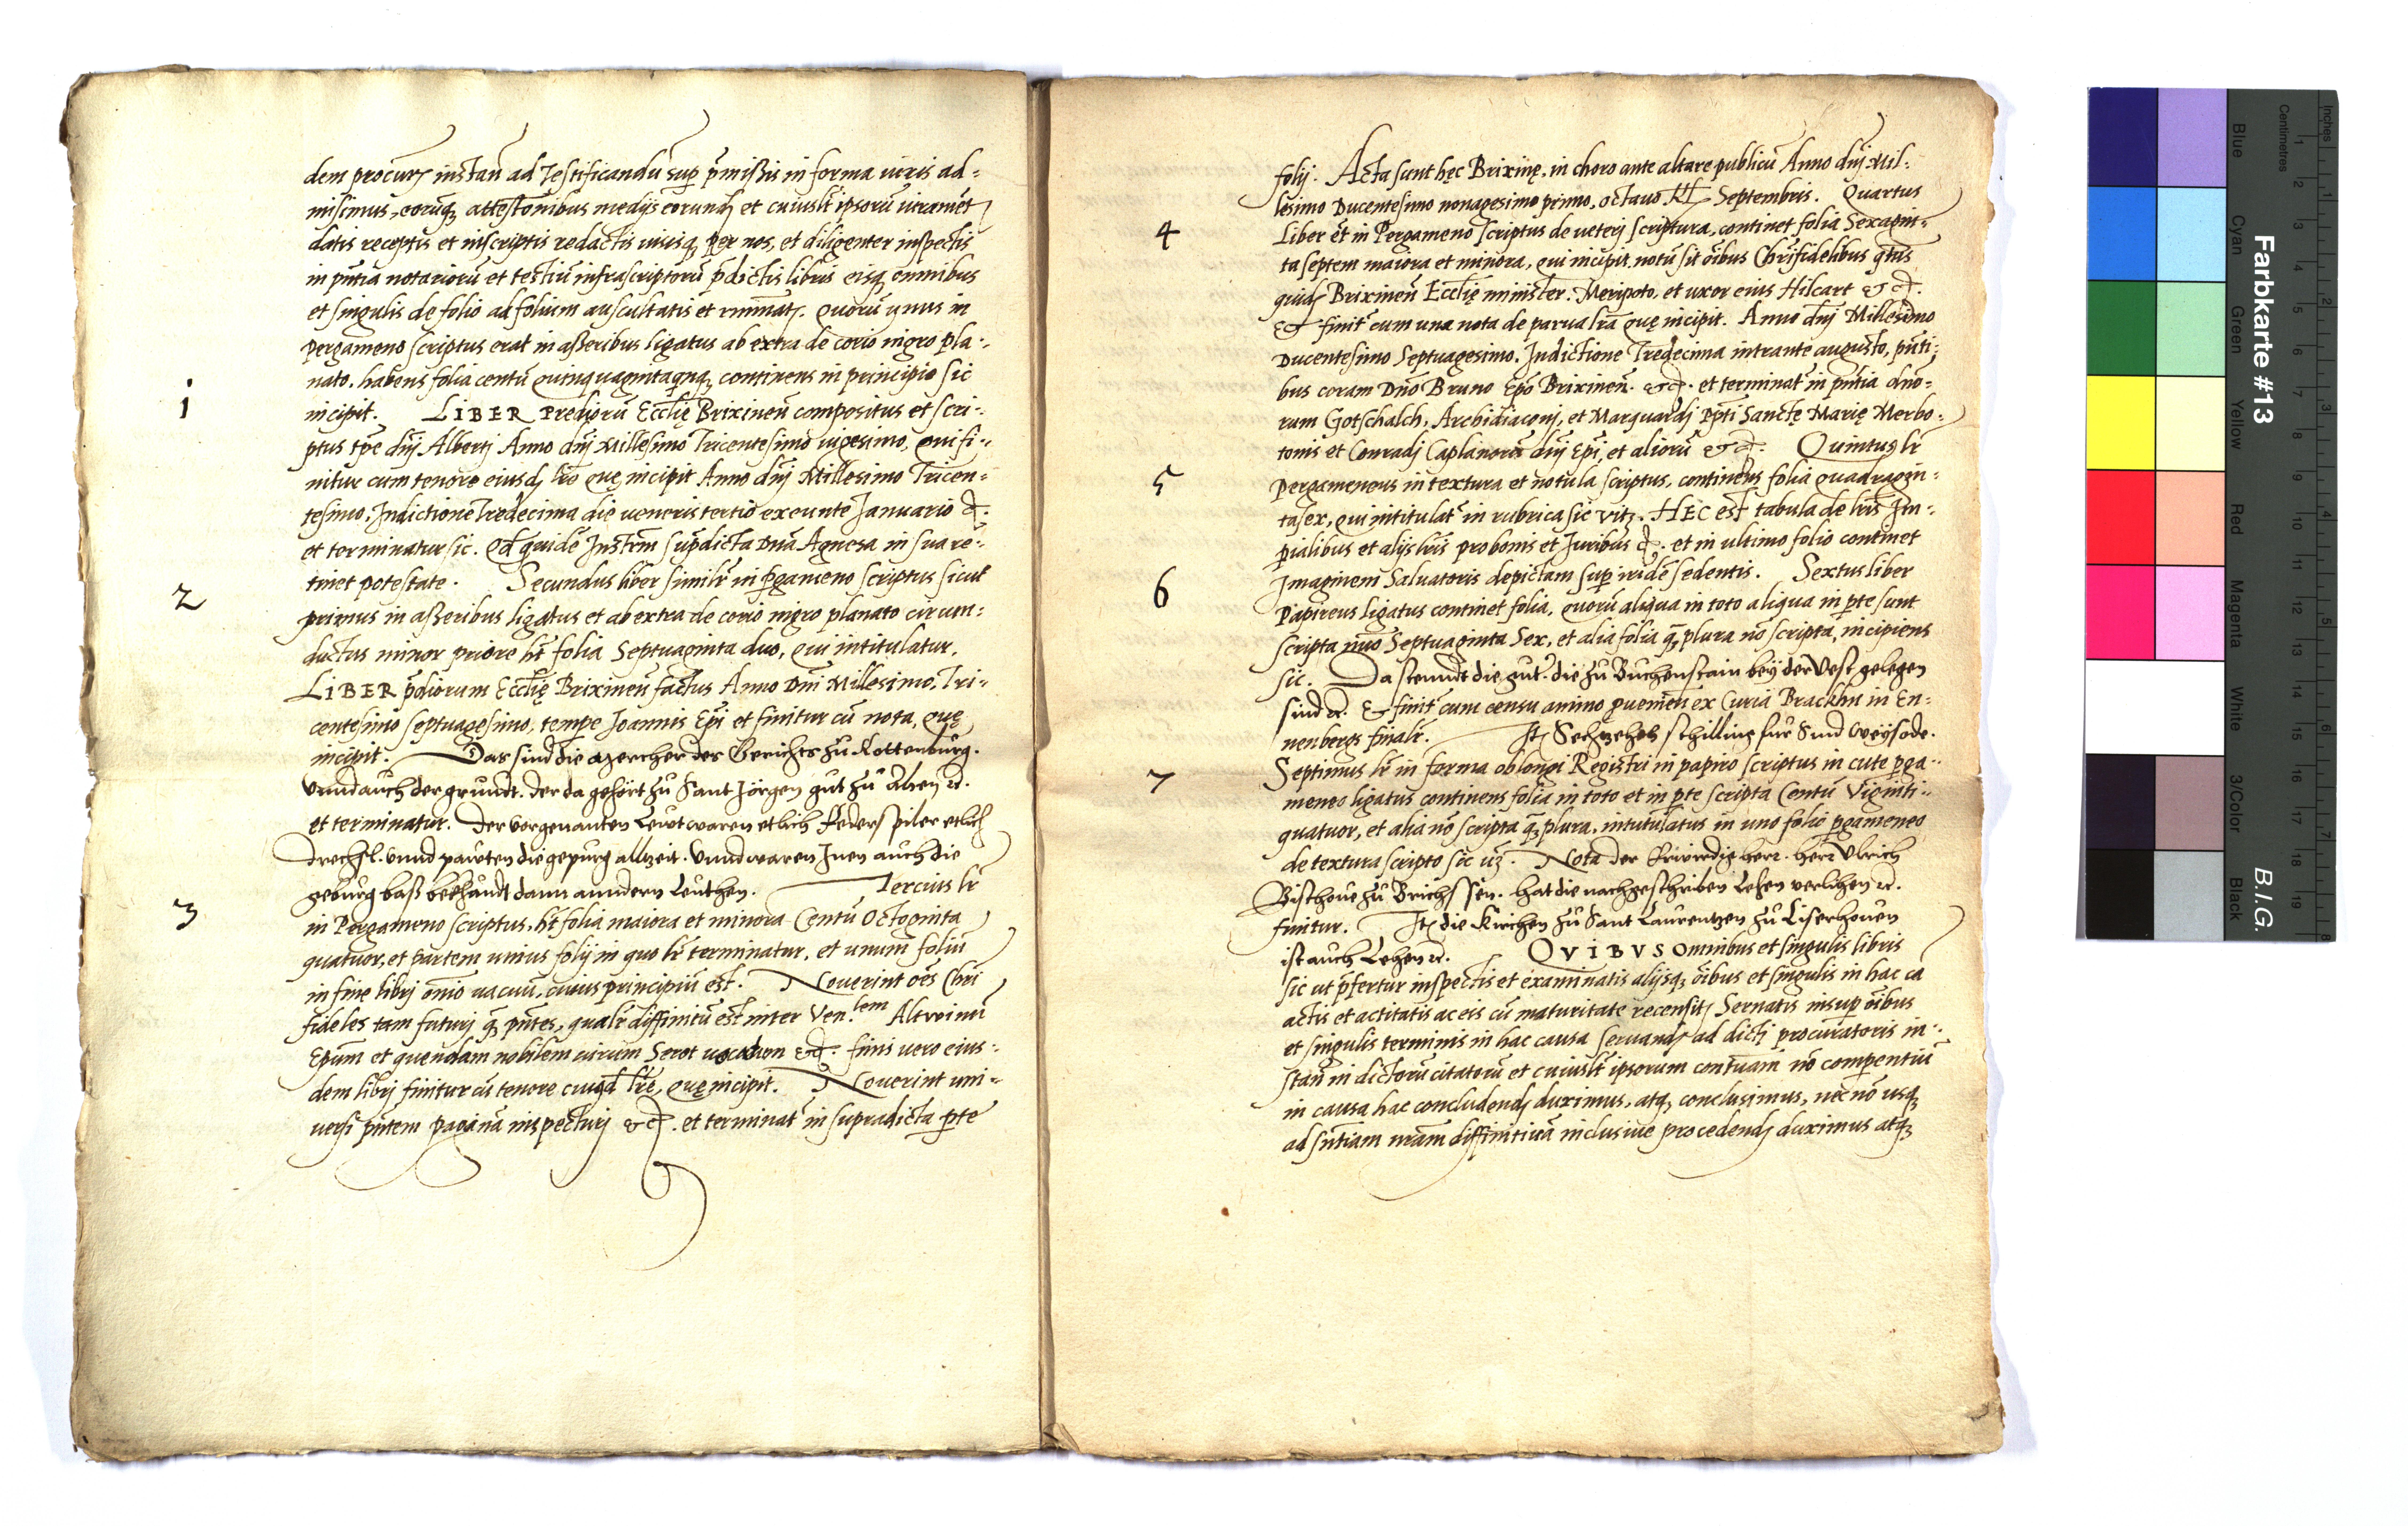 dem procur instan ad Testificandū sup p̄mißis in forma iuris ad=
misimus, eorūq attestōnibus medijs eorund et cuiuslt ipsorū iuramēt
datis receptis et inscriptis redactis visisq per nos, et diligenter inspectis
in pn̄tia notariorū et testiū infrascriptorū p̄dictis libris eisq omnibus
et singulis de folio ad folium auscultatis et ruminat. Quorū unus in
pergameno scriptus erat in aßeribus ligatus ab extra de corio nigro pla-
nato, habens folia centū quinquagintaqnq continens in principio sic
1
incipit. LIBER Predioru Ecclię Brixinen̄ compositus et scri-
ptus tp̄e dn̄j Albertj Anno dn̄j Millesimo Tricentesimo vigesimo, qui fi-
nitur cum tenore eiusdj lr̄e quę incipit Anno dn̄j Millesimo Tricen-
tesimo, Indictione Tredecima die veneris tertio exeunte Januario &.
et terminatur sic. Qd quidē Instrm̄ supdicta Dna Agnesa in sua re-
tinet potestate. Secundus liber similr̄ in Pgameno scriptus sicut
2
primus in aßeribus ligatus et ab extra de corio nigro planato circum-
ductus minor priore ht folia Septuaginta duo, qui intitulatur.
LIBER p̄diorum Ecclię Brixinen̄ factus Anno Dn̄i Millesimo, Tri-
centesimo septuagesimo, tempe Joannis Ep̄i et finitur cū nota, quę
incipit. Das sind die Mercher des Gerichts zu Rottenburg.
Vnnd auch der grundt. der da gehört zu Sant Jörgen gut zu
et terminatur. Der vorgenanten Leivt waren etlich Federspiler etlich
drechsl. vnnd pawten die gepurg allzeit. Vnnd waren Inen auch die
geburg baß bekhandt dann anndern Leuthen. Tercius lr̄
3
in Pergameno scriptus, ht folia maiora et minora Centū Octoginta
quatuor, et partem unius folij in quo lr̄ terminatur, et unum foliū
in fine librj om̄io vacuū, cuius principiū est. Nouerint oēs Chri
fideles tam futurj q pn̄tes, qualr̄ diffinitū est inter Ven.lem Altwinū
Epūm et quendam nobilem virum Serot vocatum &. finis vero eius-
dem librj finitur cū tenore cuiusd lr̄ę, quę incipit. Nouerint uni-
versi pn̄tem paginā inspecturj &. et terminat in supradicta pte
folij. Acta sunt hęc Brixinę, in choro ante altare publicū Anno dn̄j Mil-
lesimo Ducentesimo nonagesimo primo, octauo Septembris. Quartus
4
Liber ēt in Pergameno scriptus de veterj scriptura, continet folia Sexagin-
ta septem maiora et minora, qui incipit, notū sit ōibus Chrifidelibus qtus
quid Brixinen̄ Ecclię minister. Meripoto, et uxor eius Hilcart &.
& finit cum una nota de parua lr̄a quę incipit. Anno dn̄j Millesimo
Ducentesimo Septuagesimo, Indictione Tredecima intrante augusto, pn̄ti-
bus coram Dn̄o Bruno Epō Brixinen̄. &. et terminat in pn̄tia dnō-
rum Gotschalch, Archidiaconj, et Marquardj Ppti Sanctę Marię Merbo-
tonis et Conradj Caplanorū dn̄j Ep̄i, et aliorū &. Quintus lr̄
5
Pergameneus in textura et notula scriptus, continens folia quadragin-
tasex, qui intitulat in rubrica sic vitz. HEC est tabula de lr̄is Im-
pialibus et alijs lr̄is pro bonis et Juribus &. et in ultimo folio continet
6
Imaginem Saluatoris depictam sup iride sedentis. Sextus liber
Papireus ligatus continet folia, quorū aliqua in toto aliqua in pte sunt
scripta nūo Septuaginta Sex, et alia folia q plura nō scripta, incipiens
sic. Da stenndt die gut. die zu Buchenstain bey der Vest gelegen
sind &. & finit cum censu annuo puemen̄ ex Curia Brackhn in En-
nenbergs finalr̄. It Sechzehen schilling für Sind Weysode.
7
Septimus lr̄ in forma oblongi Registri in papiro scriptus in cute pga-
meneo ligatus continens folia in toto et in pte scripta Centū Viginti-
quatuor, et alia nō scripta q plura, intitulatus in uno folio pgameneo
de textura scripto sic vz. Nota der Erwirdig herr. herr Vlrich
Bischoue zu Brichssen. hat die nachgeschriben Lehen verlihen &.
finitur. It die Kirchen zu Sant Laurentzen zu Liserhouen
ist auch Lehen &. QVIBVS Omnibus et singulis libris
sic ut p̄fertur inspectis et examinatis alijsq ōibus et singulis in hac cā
actis et actitatis ac eis cū maturitate recensit Seruatis insup ōibus
et singulis terminis in hac causa seruand ad dicti procuratoris in-
stan̄ in dictorū citatorū et cuiuslt ipsorum contuām nō compentiū
in causa hac concludendj duximus, atq conclusimus, nec nō usq
ad sn̄tiam nr̄am diffinitiuā inclusiue procedendj duximus atq